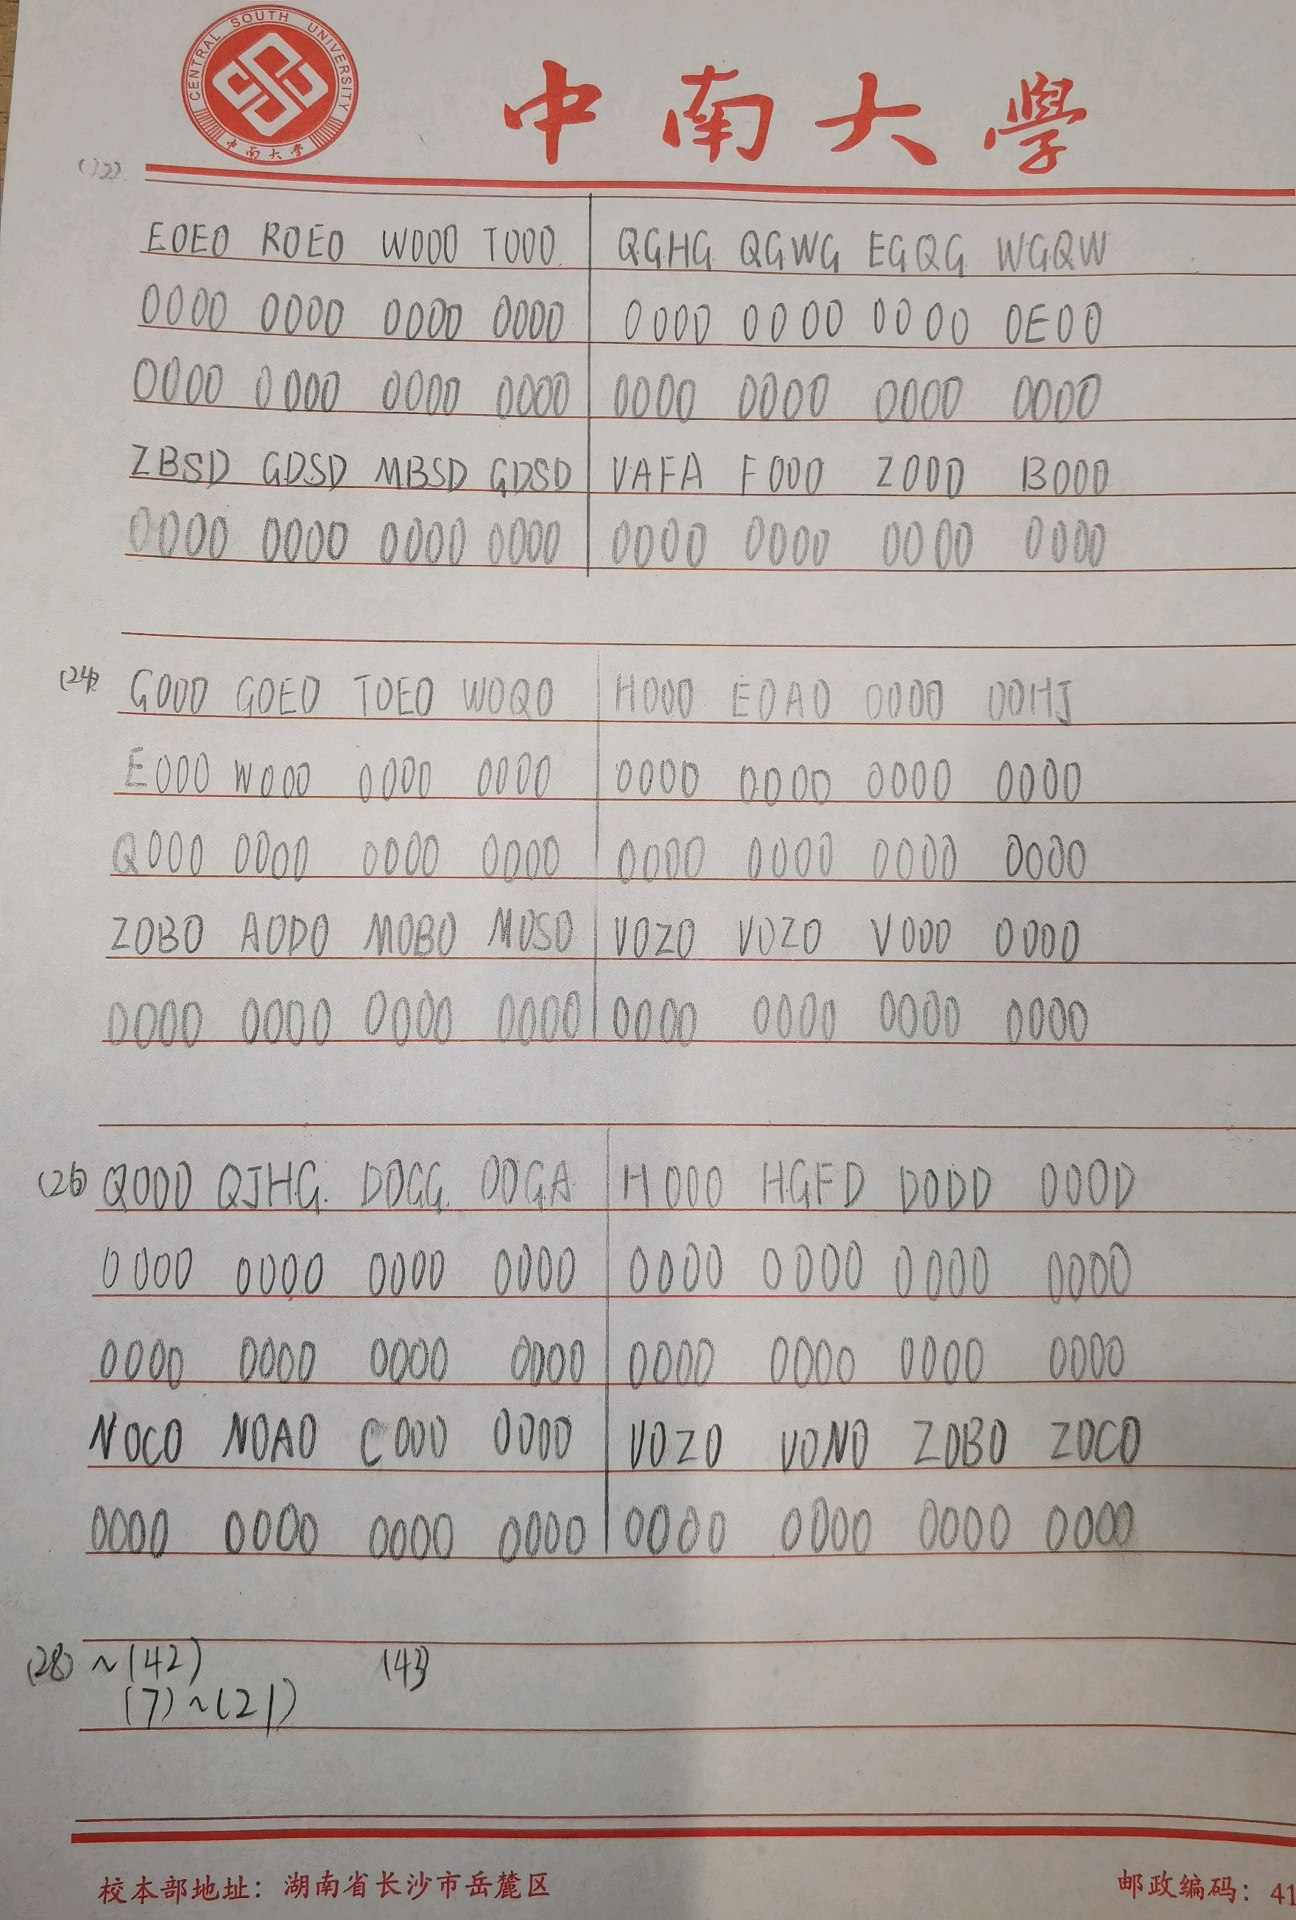 CENTRAL SOUTH UNIVERSITY
中南大学
中南大學
(22)
EOEO ROEO WOOO TOOO QGHG QGWG EGQG WGQW
0000 0000 0000 0000 0000 0000 0000 0E00
0000 0000 0000 0000 0000 0000 0000 0000
ZBSD GDSD MBSD GDSD VAFA F000 Z000 B000
0000 0000 0000 0000 0000 0000 0000 0000
(24)
G000 G0E0 T0E0 W0Q0 H000 E0A0 0000 00HJ
E000 W000 0000 0000 0000 0000 0000 0000
Q000 0000 0000 0000 0000 0000 0000 0000
Z0B0 A0D0 M0B0 M0S0 V0Z0 V0Z0 V000 0000
0000 0000 0000 0000 0000 0000 0000 0000
(26) Q000 QJHG D0GG 00GA H000 HGFD D0DD 000D
0000 0000 0000 0000 0000 0000 0000 0000
0000 0000 0000 0000 0000 0000 0000 0000
N0C0 N0A0 C000 0000 V0Z0 V0N0 Z0B0 Z0C0
0000 0000 0000 0000 0000 0000 0000 0000
(28) ~(42) (43)
(7)~(21)
校本部地址：湖南省长沙市岳麓区 邮政编码：41